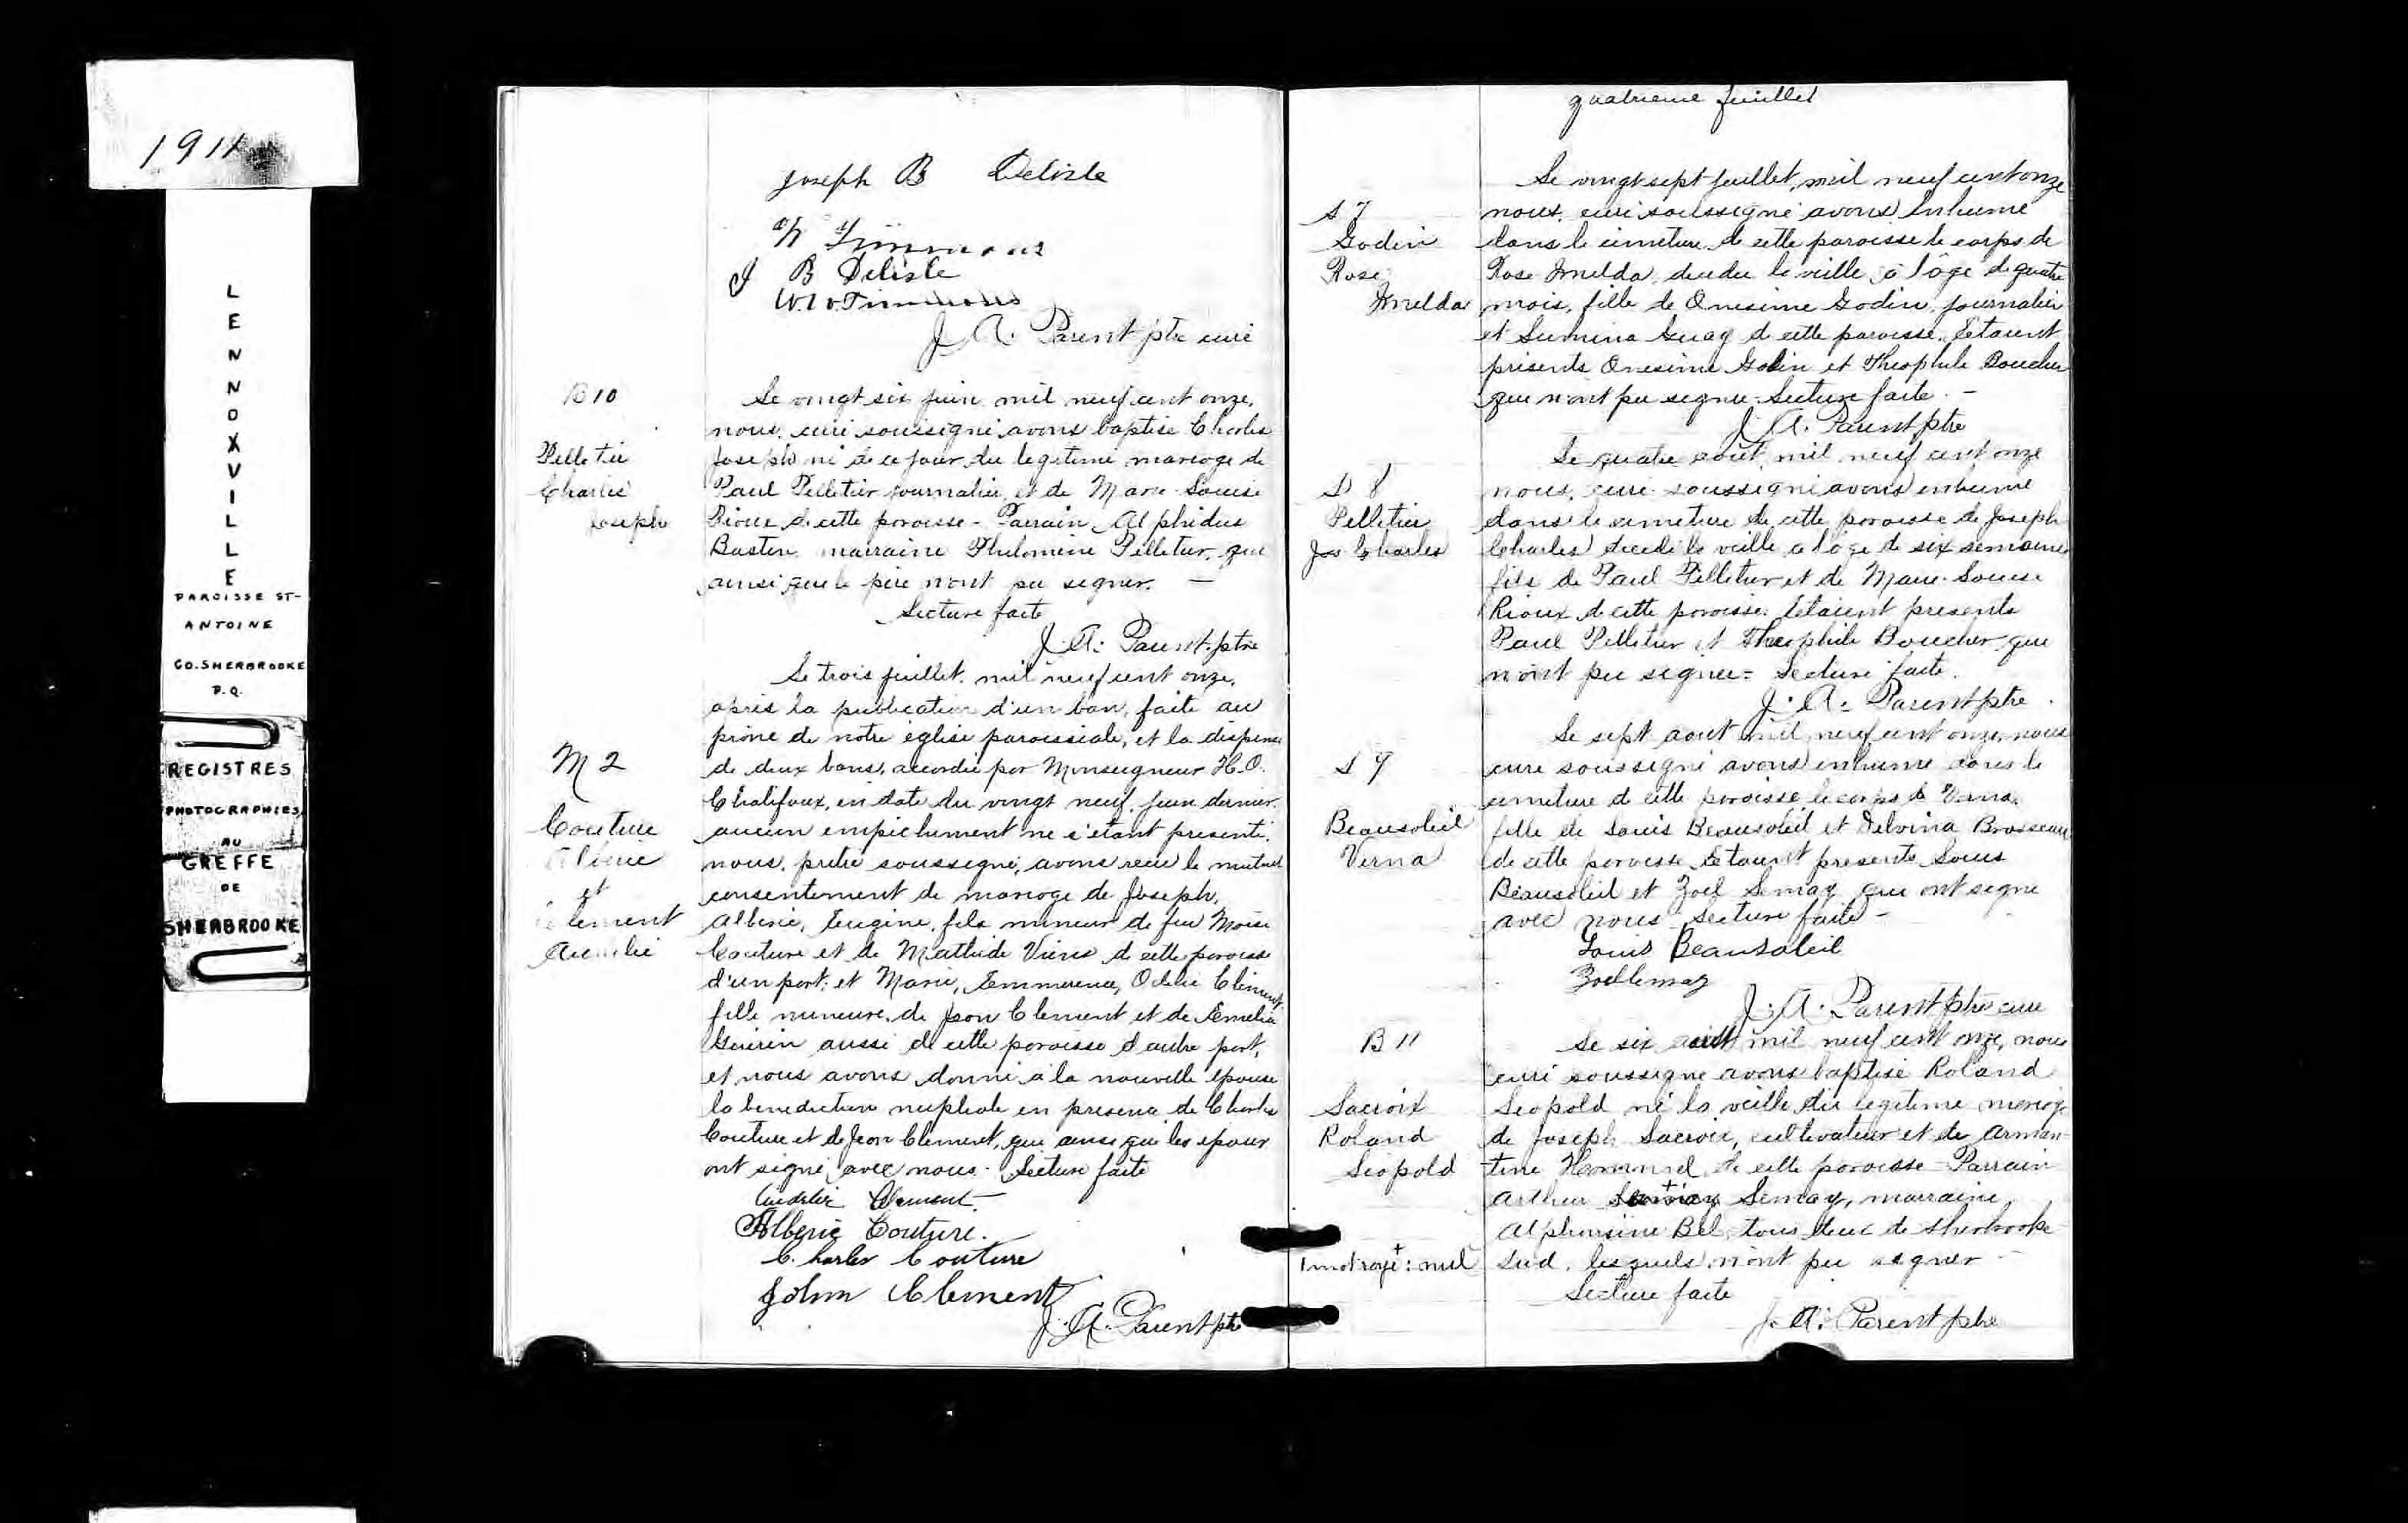 1911
L
E
N
N
O
X
V
I
L
L
E
PAROISSE ST-
ANTOINE
CO. SHERBROOKE
P.Q.
REGISTRES
PHOTOGRAPHIES
AU
GREFFE
DE
SHERBROOKE
Joseph B Delisle
Timmons
J B Delisle
W. Timmons
J. A. Parent ptre curé
B 10
Pelletier
Charles
Joseph
Le vingt six juin mil neuf cent onze,
nous, curé soussigné avons baptisé Charles
Joseph né de ce jour du legitime mariage de
Paul Pelletier journalier et de Marie-Louise
Rioux de cette paroisse - Parrain Alphidus
Bastien marraine Philomène Pelletier, qui
ainsi que le père n'ont pu signer. —
Lecture faite
J. A. Parent ptre
M 2
Couture
Alberic
et
Clement
Le trois juillet, mil neuf cent onze,
après la publication d'un ban, faite au
prône de notre église paroissiale, et la dispense
de deux bans, accordée par Monseigneur H. O.
Chalifoux, en date du vingt neuf juin dernier.
aucun empêchement ne s'étant présenté,
nous, prêtre soussigné, avons reçu le mutuel
consentement de mariage de Joseph,
Alberic, Eugène, fils mineur de feu Moïse
Couture et de Mathilde Viens de cette paroisse
d'un part; et Marie, Emmerence, Odelie Clément
fille mineure, de Jean Clement et de Emelia
Guérin aussi de cette paroisse d'autre part,
et nous avons donné à la nouvelle épouse
la benediction nuptiale en presence de Charles
Couture et de Jean Clement, qui ainsi que les époux
ont signé avec nous. Lecture faite
Clement
Alberic Couture.
Charles Couture
John Clement
J. A. Parent ptre
quatrieme feuillet
S 7
Godin
Rose
Imelda
Le vingt sept juillet, mil neuf cent onze
nous, curé soussigné avons inhumé
dans le cimetière de cette paroisse le corps de
Rose Imelda, décédée la veille à l'âge de quatre
mois, fille de Onesime Godin, journalier
et Guay de cette paroisse. Etaient
présents Onesime Godin et Theophile Boucher
qui n'ont pu signer. Lecture faite. —
J. A. Parent ptre
S 8
Pelletier
Jos Charles
Le quatre août, mil neuf cent onze
nous, curé soussigné avons enhumé
dans le cimetière de cette paroisse de Joseph
Charles décédé la veille a l'âge de six semaines
fils de Paul Pelletier et de Marie-Louise
Rioux de cette paroisse. Etaient presents
Paul Pelletier et Theophile Boucher qui
n'ont pu signer = Lecture faite.
J. A. Parent ptre
S 9
Beausoleil
Verna
Le sept aout mil neuf cent onze, nous
curé soussigné avons enhumé dans le
cimetière de cette paroisse le corps de Verna,
fille de Louis Beausoleil et Delvina Brosseau
de cette paroisse. Etaient presents Louis
Beausoleil et Zoel Lemay qui ont signé
avec nous Lecture faite -
Louis Beausoleil
Zoel Lemay
J. A. Parent ptre curé
B 11
Lacroix
Roland
Leopold
Le six août mil neuf cent onze, nous
curé soussigné avons baptisé Roland
Leopold né la veille du legitime mariage
de Joseph Lacroix, cultivateur et de Arman-
tine de cette paroisse - Parrain
Arthur Lemay, marraine,
Alphonsine Bel, tous deux de Sherbrooke
Sud, lesquels n'ont pu signer -
1 mot rayé + : nul
Lecture faite
J. A. Parent ptre